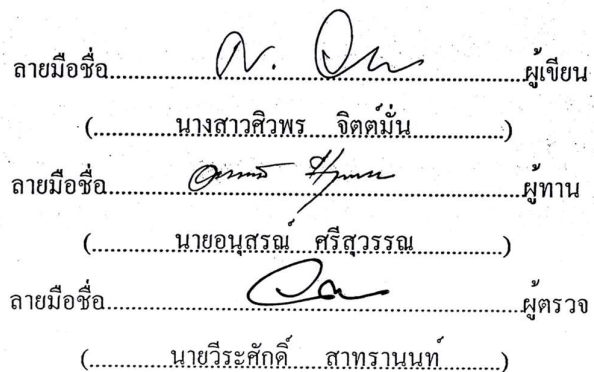 ลายมือชื่อ..............................ผู้เขียน
(..............นางสาวศิวพร จิตต์มั่น..............)
ลายมือชื่อ..............................ผู้ทาน
(..............นายอนุสรณ์ ศรีสุวรรณ..............)
ลายมือชื่อ..............................ผู้ตรวจ
(..............นายวีระศักดิ์ สาทรานนท์..............)